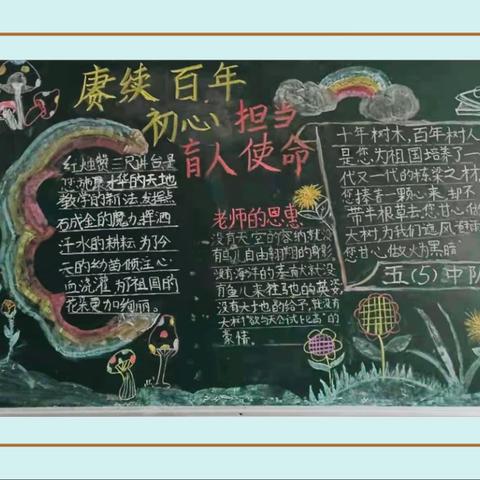 赓续百年
初心担当
育人使命
红烛赞三尺讲台是
您施展才华的天地
教学的新法发挥点
石成金的魔力挥洒
汗水的耕耘为今
天的幼苗倾注心
血浇灌为祖国的
花朵更加绚丽。
老师的恩惠
没有天空的容纳就没
有鸟儿自由翱翔的身影
没有海洋的
有鱼儿来往的英姿
没有大地的给予就没有
大树“欲与天公试比高”的
豪情。
十年树木,百年树人
是您为祖国培养了一
代又一代的栋梁之材
您捧着一颗心来却不
带半根草去您甘心做
大树为我们遮风避雨
您甘心做火为黑暗
五(5)中队